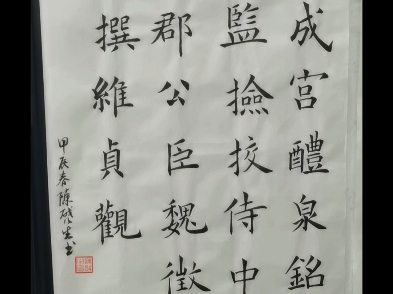 成宮醴泉銘
監撿挍侍中
郡公臣魏徵
撰維貞觀
甲辰春陳硯生书